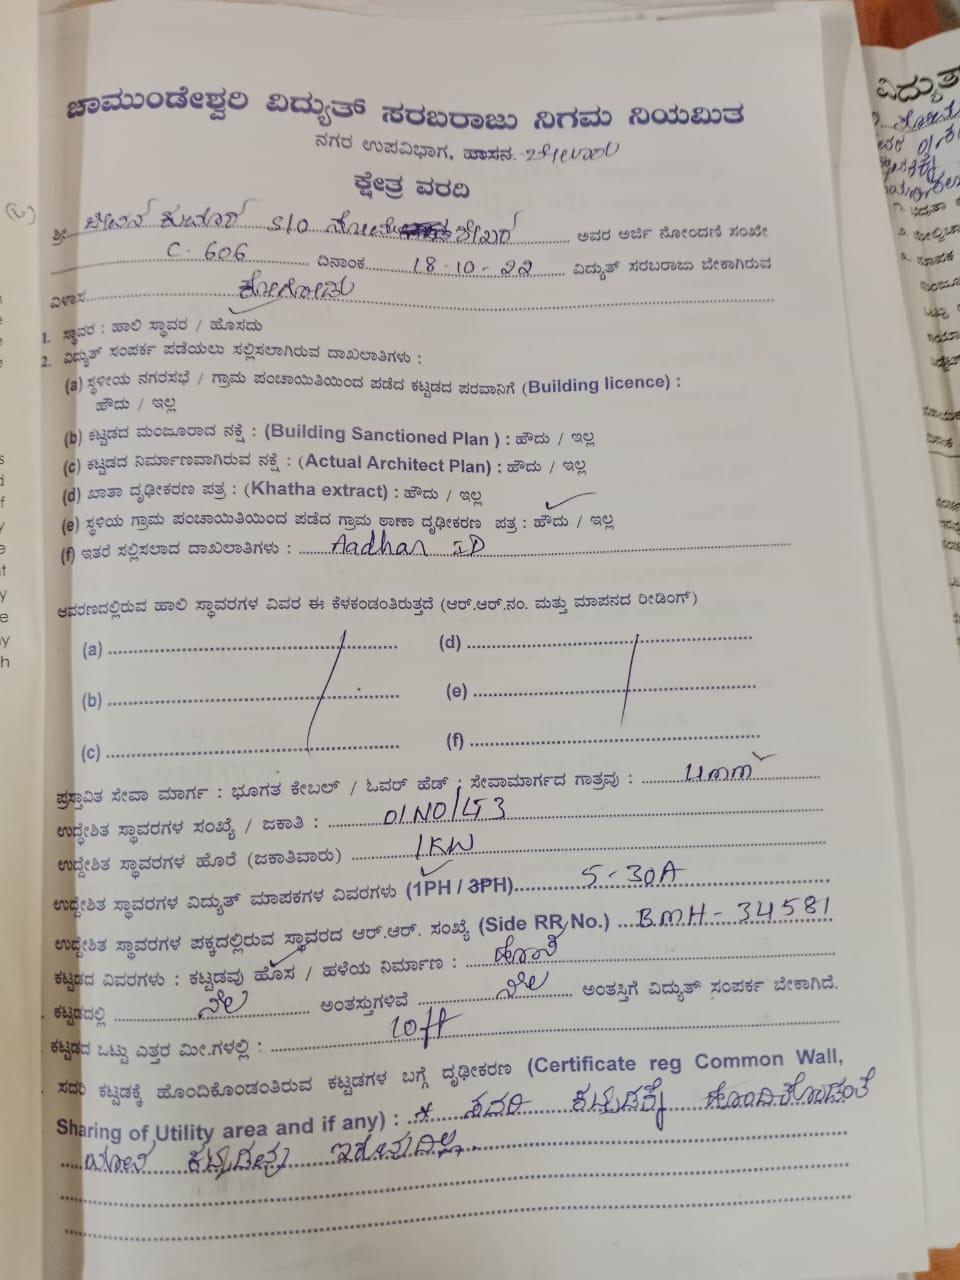 ಚಾಮುಂಡೇಶ್ವರಿ ವಿದ್ಯುತ್ ಸರಬರಾಜು ನಿಗಮ ನಿಯಮಿತ
ನಗರ ಉಪವಿಭಾಗ, ಹಾಸನ. ಬೇಲೂರು
ಕ್ಷೇತ್ರ ವರದಿ
ಶ್ರೀ ಜೀವನ ಕುಮಾರ S/O ಅವರ ಅರ್ಜಿ ನೋಂದಣಿ ಸಂಖೇ
C-606 ದಿನಾಂಕ 18-10-22 ವಿದ್ಯುತ್ ಸರಬರಾಜು ಬೇಕಾಗಿರುವ
ವಿಳಾಸ
1. ಸ್ಥಾವರ : ಹಾಲಿ ಸ್ಥಾವರ / ಹೊಸದು
2. ವಿದ್ಯುತ್ ಸಂಪರ್ಕ ಪಡೆಯಲು ಸಲ್ಲಿಸಲಾಗಿರುವ ದಾಖಲಾತಿಗಳು :
(a) ಸ್ಥಳೀಯ ನಗರಸಭೆ / ಗ್ರಾಮ ಪಂಚಾಯಿತಿಯಿಂದ ಪಡೆದ ಕಟ್ಟಡದ ಪರವಾನಿಗೆ (Building licence) :
ಹೌದು / ಇಲ್ಲ
(b) ಕಟ್ಟಡದ ಮಂಜೂರಾದ ನಕ್ಷೆ : (Building Sanctioned Plan ) : ಹೌದು / ಇಲ್ಲ
(c) ಕಟ್ಟಡದ ನಿರ್ಮಾಣವಾಗಿರುವ ನಕ್ಷೆ : (Actual Architect Plan) : ಹೌದು / ಇಲ್ಲ
(d) ಖಾತಾ ದೃಢೀಕರಣ ಪತ್ರ : (Khatha extract) : ಹೌದು / ಇಲ್ಲ
(e) ಸ್ಥಳಿಯ ಗ್ರಾಮ ಪಂಚಾಯಿತಿಯಿಂದ ಪಡೆದ ಗ್ರಾಮ ಠಾಣಾ ದೃಢೀಕರಣ ಪತ್ರ : ಹೌದು / ಇಲ್ಲ
(f) ಇತರೆ ಸಲ್ಲಿಸಲಾದ ದಾಖಲಾತಿಗಳು : Aadhar ID
ಆವರಣದಲ್ಲಿರುವ ಹಾಲಿ ಸ್ಥಾವರಗಳ ವಿವರ ಈ ಕೆಳಕಂಡಂತಿರುತ್ತದೆ (ಆರ್.ಆರ್.ನಂ. ಮತ್ತು ಮಾಪನದ ರೀಡಿಂಗ್)
(a) (d)
(b) (e)
(c) (f)
ಪ್ರಸ್ತಾವಿತ ಸೇವಾ ಮಾರ್ಗ : ಭೂಗತ ಕೇಬಲ್ / ಓವರ್ ಹೆಡ್ ; ಸೇವಾಮಾರ್ಗದ ಗಾತ್ರವು : 4mm
ಉದ್ದೇಶಿತ ಸ್ಥಾವರಗಳ ಸಂಖ್ಯೆ / ಜಕಾತಿ : 01NO/LT3
ಉದ್ದೇಶಿತ ಸ್ಥಾವರಗಳ ಹೊರೆ (ಜಕಾತಿವಾರು) 1KW
ಉದ್ದೇಶಿತ ಸ್ಥಾವರಗಳ ವಿದ್ಯುತ್ ಮಾಪಕಗಳ ವಿವರಗಳು (1PH / 3PH) 5-30A
ಉದ್ದೇಶಿತ ಸ್ಥಾವರಗಳ ಪಕ್ಕದಲ್ಲಿರುವ ಸ್ಥಾವರದ ಆರ್.ಆರ್. ಸಂಖ್ಯೆ (Side RR No.) BMH-34581
ಕಟ್ಟಡದ ವಿವರಗಳು : ಕಟ್ಟಡವು ಹೊಸ / ಹಳೆಯ ನಿರ್ಮಾಣ :
ಕಟ್ಟಡದಲ್ಲಿ ನೆಲ ಅಂತಸ್ತುಗಳಿವೆ ನೆಲ ಅಂತಸ್ತಿಗೆ ವಿದ್ಯುತ್ ಸಂಪರ್ಕ ಬೇಕಾಗಿದೆ.
ಕಟ್ಟಡದ ಒಟ್ಟು ಎತ್ತರ ಮೀ.ಗಳಲ್ಲಿ : 10ft
ಸದರಿ ಕಟ್ಟಡಕ್ಕೆ ಹೊಂದಿಕೊಂಡಂತಿರುವ ಕಟ್ಟಡಗಳ ಬಗ್ಗೆ ದೃಢೀಕರಣ (Certificate reg Common Wall,
Sharing of Utility area and if any) : * ಸದರಿ ಕಟ್ಟಡಕ್ಕೆ ಹೊಂದಿಕೊಂಡಂತೆ
ಯಾವ ಕಟ್ಟಡವು ಇರುವುದಿಲ್ಲ